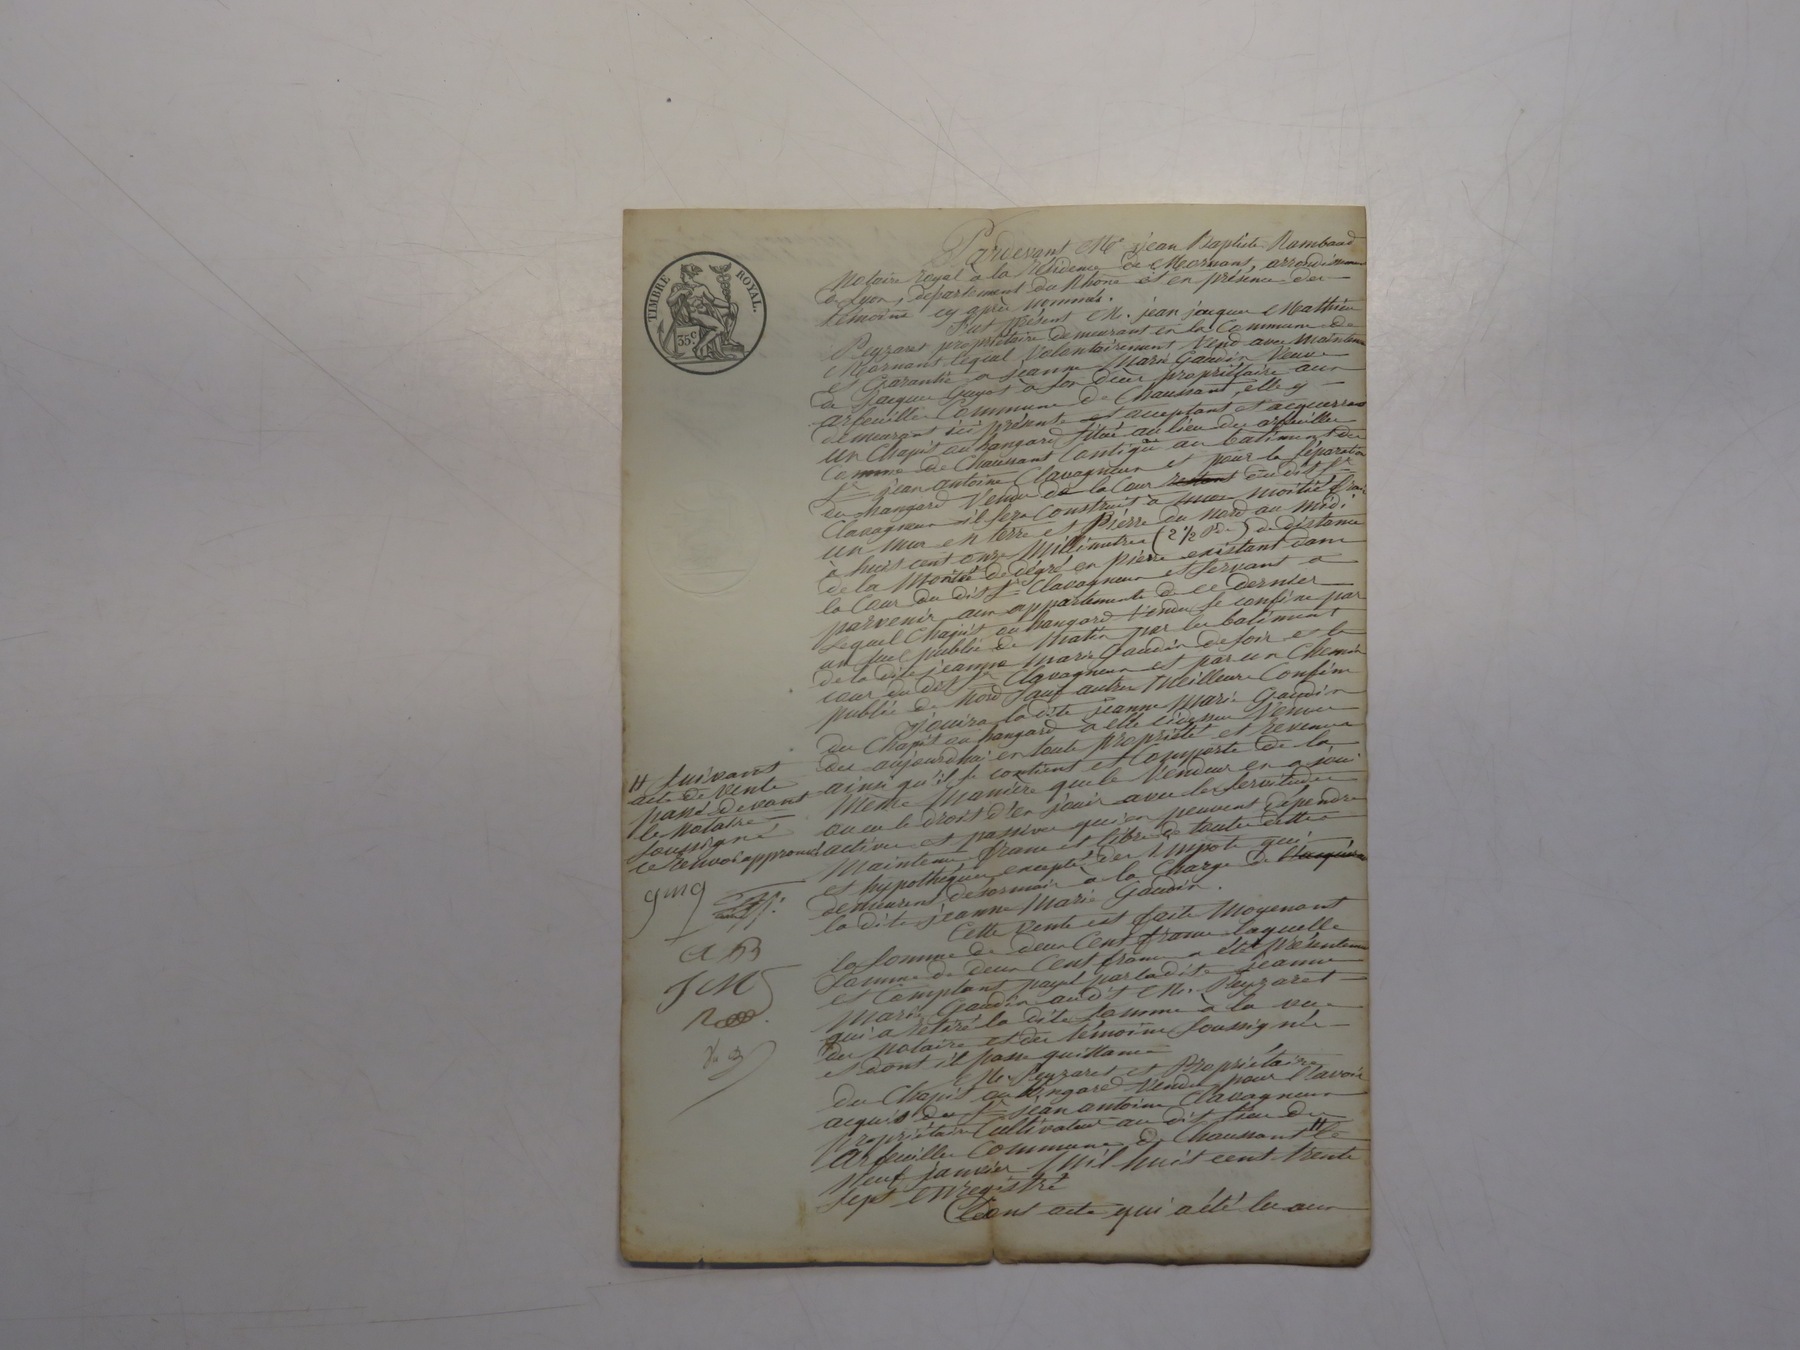 TIMBRE ROYAL.
35 c
Pardevant Me jean Baptiste Rambaud
Notaire royal à la Résidence de Mornant, arrondissement
de Lyon, département du Rhône et en présence des
témoins cy après nommés.
Fut présent M. jean jacques Mathieu
Peyzaret propriétaire demeurant en la Commune de
Mornant lequel Volontairement Vend avec maintenue
et Garantie a jeanne Marie Gaudin Veuve
de Jacques Guyot à son décès propriétaire aux
arfeuilles Commune de Chaussant, elle y
demeurant ici présente et acceptant et acquerrant
un Chapit ou hangard situé au lieu des arfeuilles
Commune de Chaussant Contiguë au batiment du
Sr jean antoine Clavagneux et pour la séparation
du hangard Vendu de la Cour restant du dit Sr
Clavagneux il sera Construit à moitié frais
un mur en terre et Pierre du Nord au midi
à huit cent onze Millimètres (2 1/2 Pds) de distance
de la Montée de dégré en pierre existant dans
la Cour du dit Sr Clavagneux et servant à
parvenir aux appartements de ce dernier
Lequel Chapit ou hangard Vendu se confine par
un publié de matin par les batiment
de la dite jeanne Marie Gaudin de soir et la
cour du dit Sr Clavagneux et par un Chemin
publié de Nord sauf autres Meilleurs Confins
Jouira la dite jeanne Marie Gaudin
du Chapit ou hangard a elle cidessus Vendu
des aujourdhui en toute propriété et revenus
ainsi qu'il se contient et Comporte de la
Même Manière que le Vendeur en a joui
ou eu le droit d'en jouir avec les servitudes
actives et passives qui en peuvent dépendre
Maintenu franc et libre de toutes dettes
et hypothèques excepté des Impots qui
demeurent desormais a la Charge de
la dite jeanne Marie Gaudin.
Cette Vente est faite Moyenant
la Somme de deux Cent francs laquelle
Somme de deux Cent francs a été présentement
et Comptant payé par la dite jeanne
Marie Gaudin audit M. Peyzaret
qui a retiré la dite Somme à la vue
des Notaire et des témoins Soussignés
et dont il passe quittance
M. Peyzaret est Propriétaire
du Chapit ou hangard Vendu pour l'avoir
acquis du Sr jean antoine Clavagneux
propriétaire Cultivateur au dit Lieu des
Arfeuilles Commune de Chaussant H le
Neuf janvier Mil huit cent trente
Sept Enregistré
Dont acte qui a été lu aux
H Suivant
acte de Vente
passé devant
le Notaire
Soussigné
ce Renvoi approuvé
gmg
A B
J M